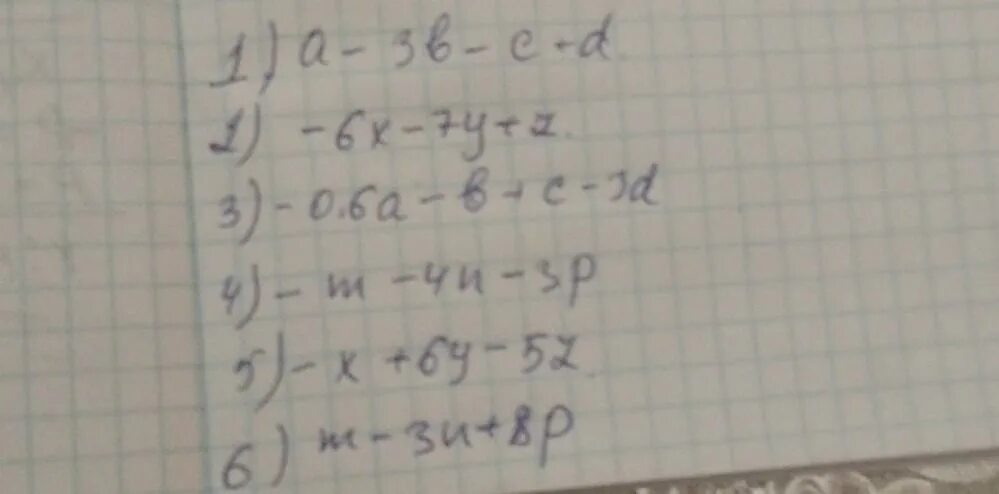 1) a - 3b - c + d
2) -6x - 7y + z
3) - 0.6a - b + c - 3d
4) - m - 4n - 3p
5) - x + 6y - 5z
6) m - 3n + 8p